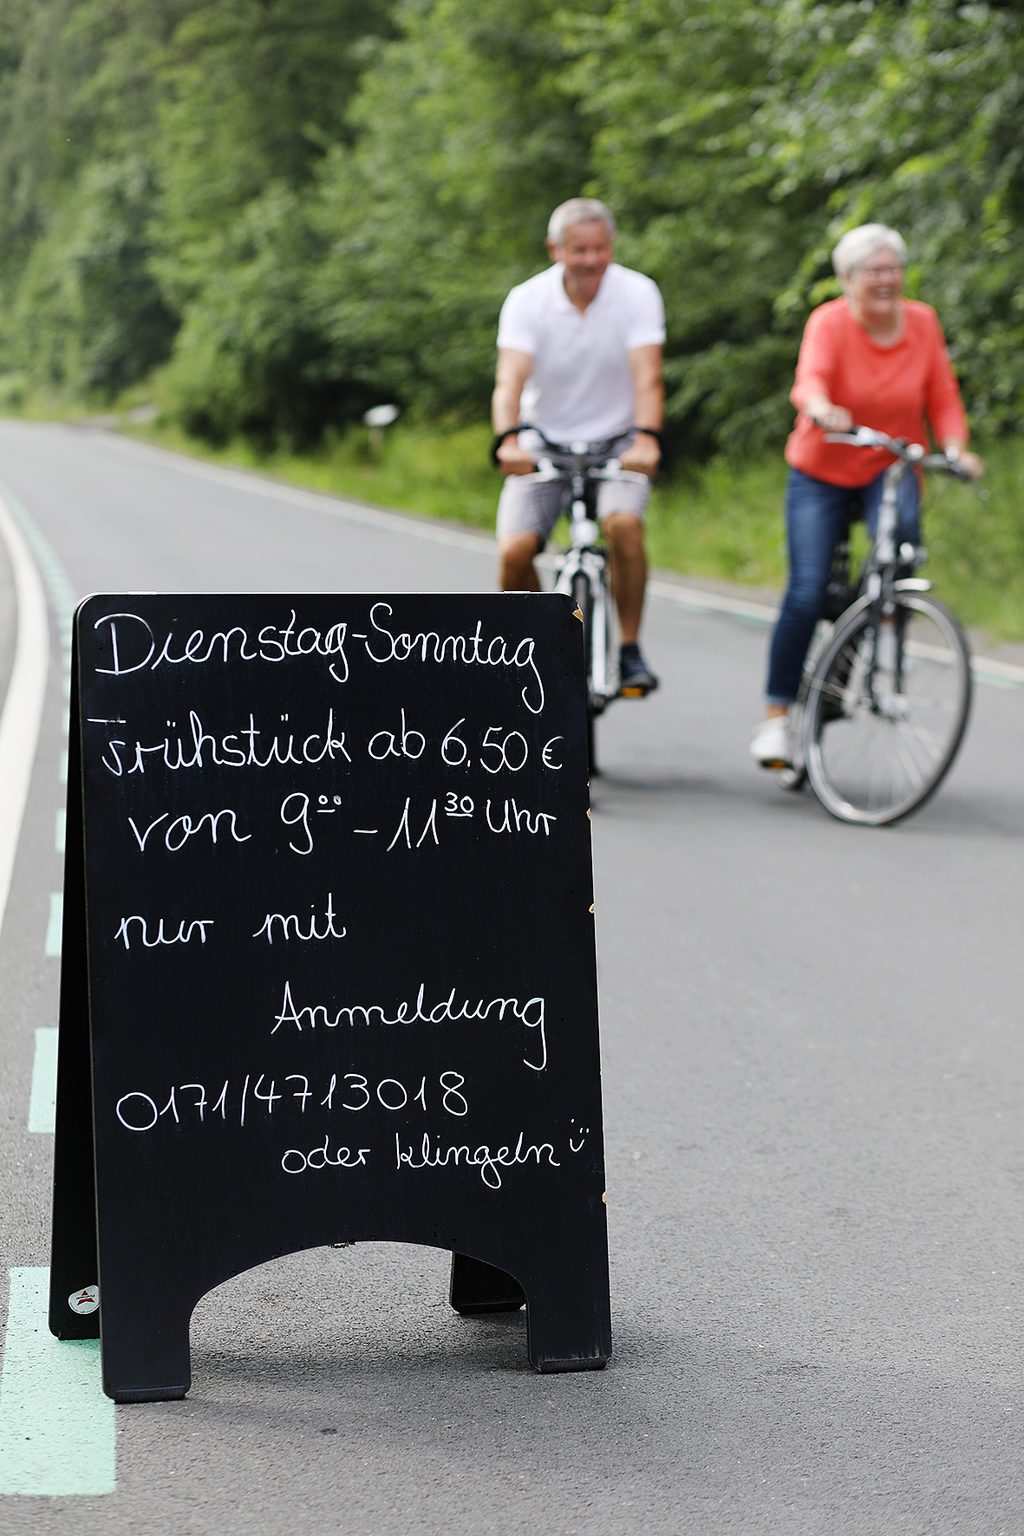 Dienstag-Sonntag
Frühstück ab 6.50 €
von 9⁰⁰ - 11³⁰ Uhr
nur mit
Anmeldung
0171/4713018
oder klingeln ü